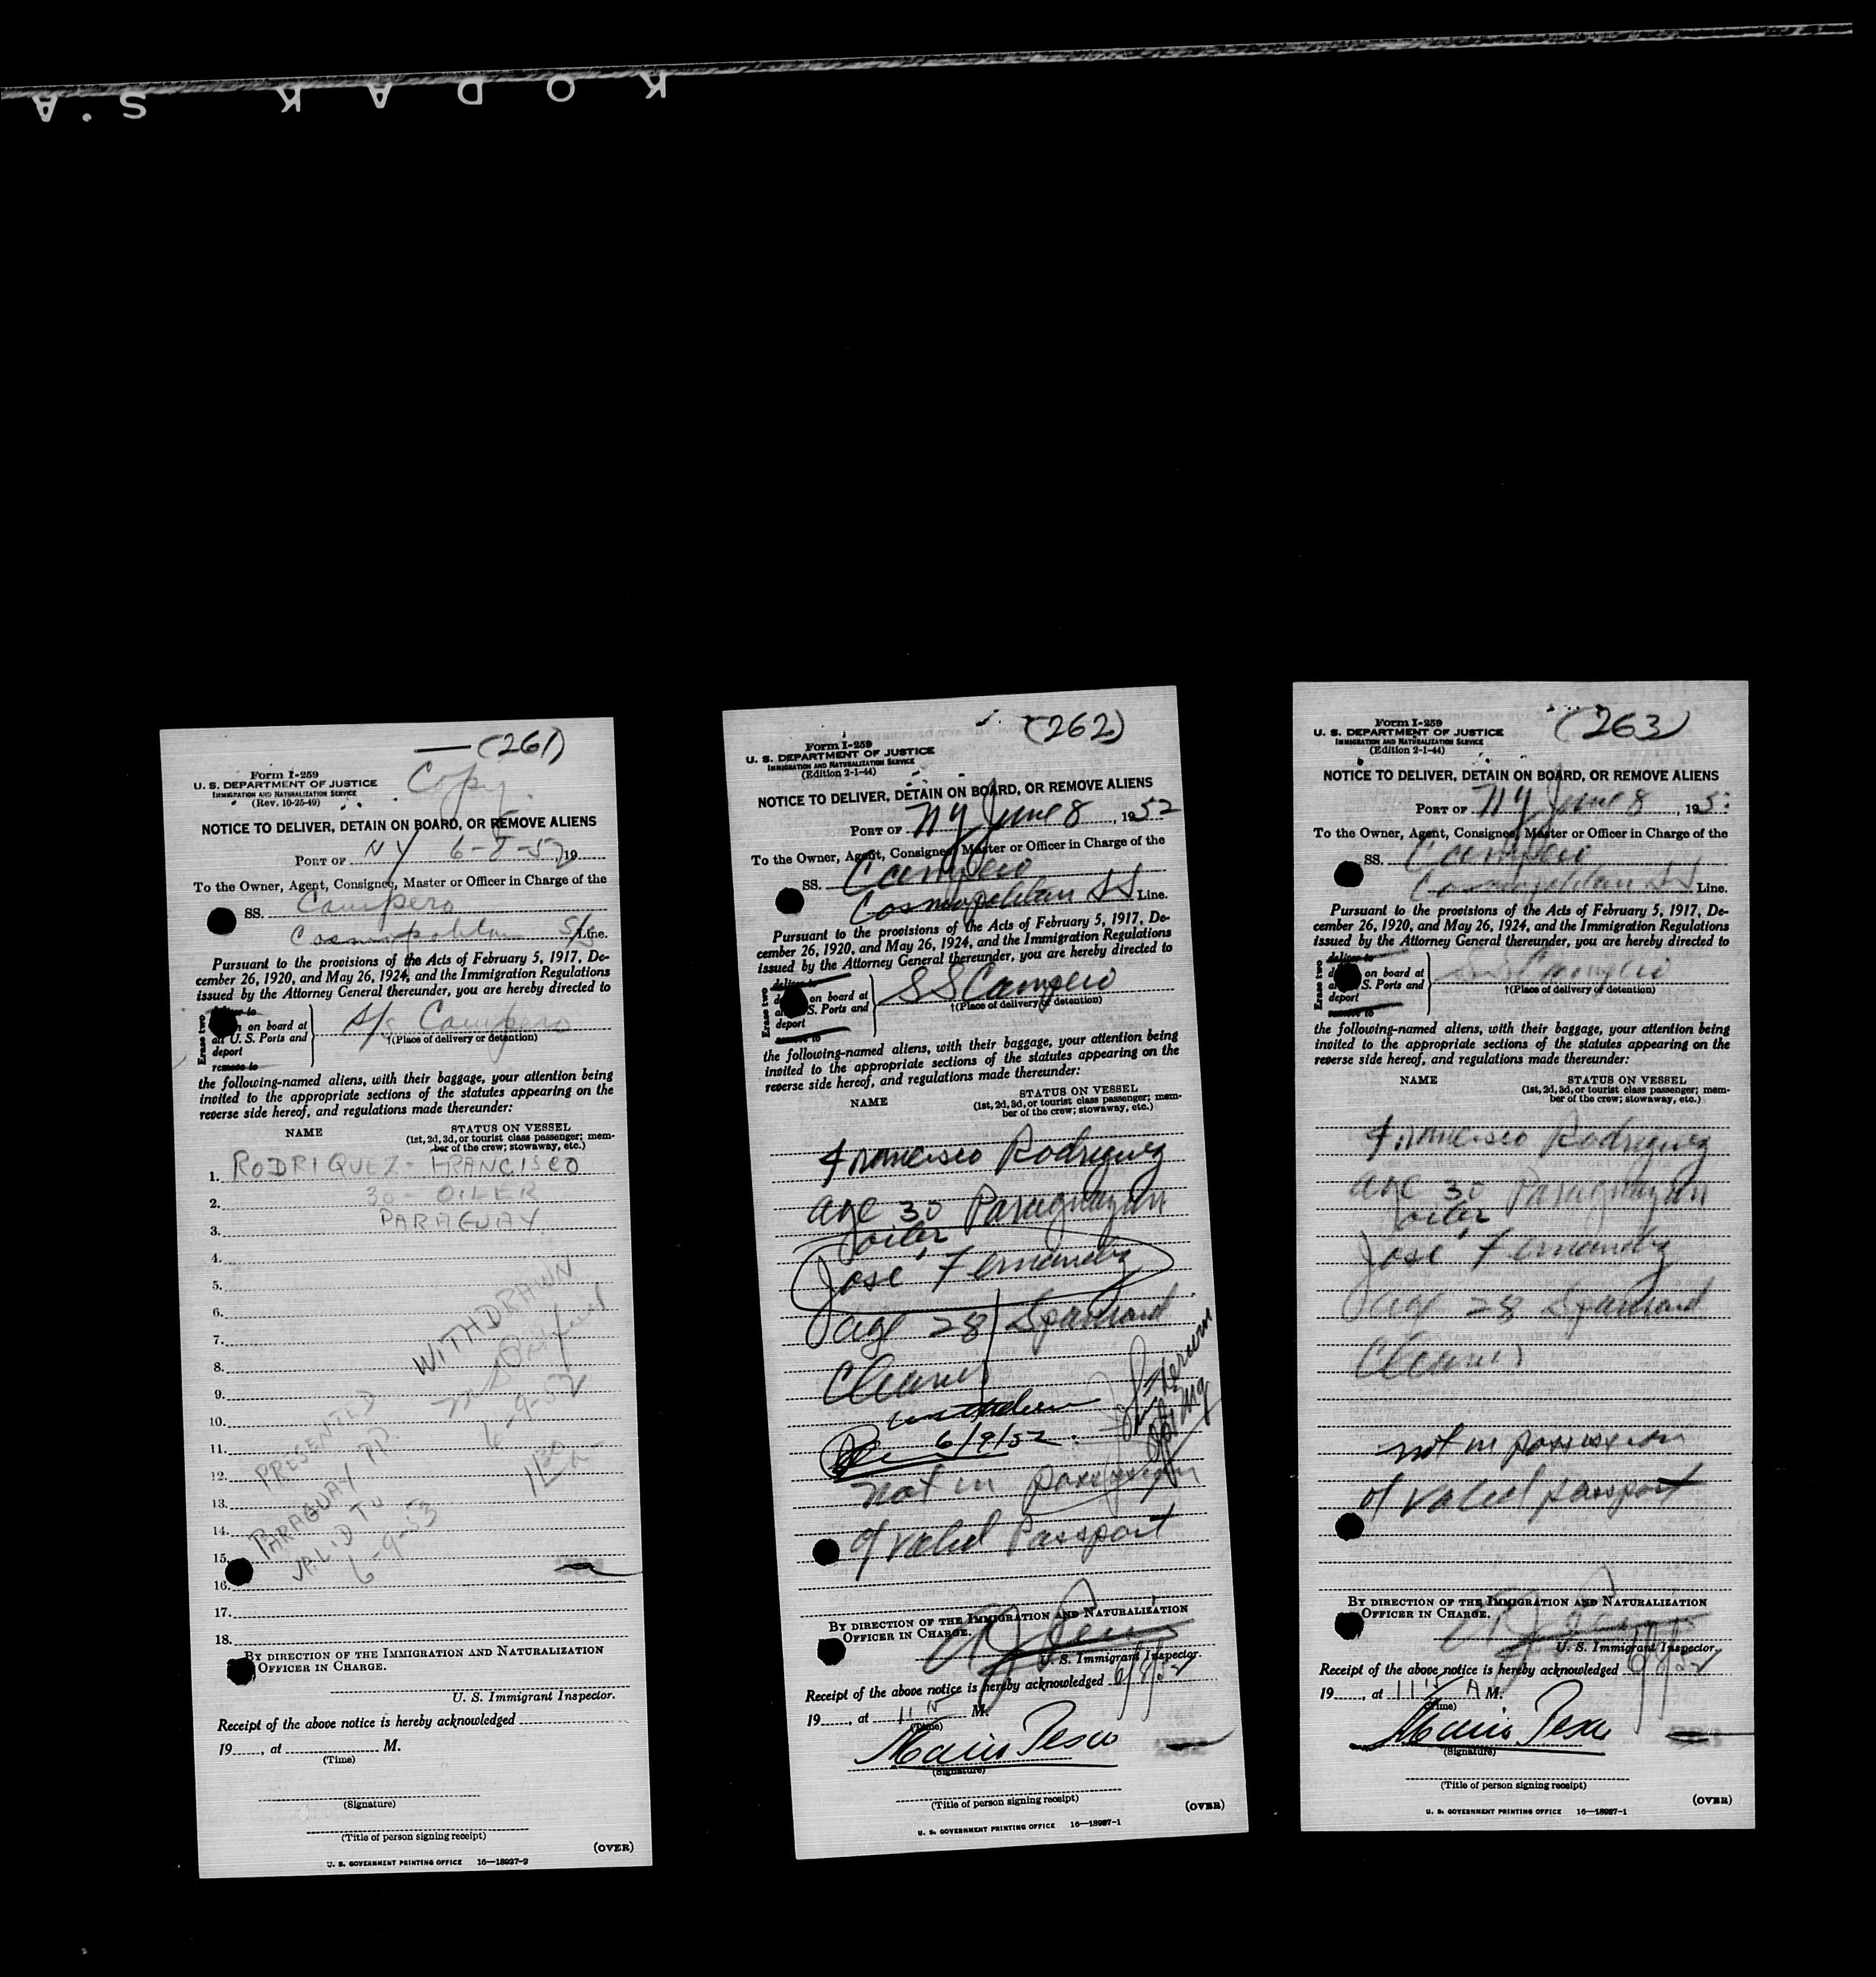 KODAK S.A
(261)
Copy
Form I-259
U. S. DEPARTMENT OF JUSTICE
IMMIGRATION AND NATURALIZATION SERVICE
(Rev. 10-25-49)
NOTICE TO DELIVER, DETAIN ON BOARD, OR REMOVE ALIENS
PORT OF NY 6-8-52, 19
To the Owner, Agent, Consignee, Master or Officer in Charge of the
SS. Campero
Cosmopolitan S/S Line.
Pursuant to the provisions of the Acts of February 5, 1917, De-
cember 26, 1920, and May 26, 1924, and the Immigration Regulations
issued by the Attorney General thereunder, you are hereby directed to
Erase two
on board at
all U. S. Ports and
deport
remove to
S/S Campero
†(Place of delivery or detention)
the following-named aliens, with their baggage, your attention being
invited to the appropriate sections of the statutes appearing on the
reverse side hereof, and regulations made thereunder:
NAME STATUS ON VESSEL
(1st, 2d, 3d, or tourist class passenger; mem-
ber of the crew; stowaway, etc.)
1. RODRIQUEZ- FRANCISCO
2. 30- OILER
3. PARAGUAY
4.
5.
6.
7.
8.
9.
10.
11.
12.
13.
14.
15.
16.
17.
18.
WITHDRAWN
6-9-52
1130 a
PRESENTED
PARAGUAY PP.
VALID TO
6-9-53
BY DIRECTION OF THE IMMIGRATION AND NATURALIZATION
OFFICER IN CHARGE.
U. S. Immigrant Inspector.
Receipt of the above notice is hereby acknowledged
19, at M.
(Time)
(Signature)
(Title of person signing receipt)
(OVER)
U. S. GOVERNMENT PRINTING OFFICE 16—18927-2
(262)
Form I-259
U. S. DEPARTMENT OF JUSTICE
IMMIGRATION AND NATURALIZATION SERVICE
(Edition 2-1-44)
NOTICE TO DELIVER, DETAIN ON BOARD, OR REMOVE ALIENS
PORT OF NY June 8, 1952
To the Owner, Agent, Consignee, Master or Officer in Charge of the
SS. Campero
Cosmopolitan SS Line.
Pursuant to the provisions of the Acts of February 5, 1917, De-
cember 26, 1920, and May 26, 1924, and the Immigration Regulations
issued by the Attorney General thereunder, you are hereby directed to
Erase two
deliver to
on board at
S. Ports and
deport
remove to
SS Campero
†(Place of delivery or detention)
the following-named aliens, with their baggage, your attention being
invited to the appropriate sections of the statutes appearing on the
reverse side hereof, and regulations made thereunder:
NAME STATUS ON VESSEL
(1st, 2d, 3d, or tourist class passenger; mem-
ber of the crew; stowaway, etc.)
Francisco Rodriguez
age 30 Paraguayan
oiler
Jose Fernandez
age 28 Spaniard
Cleaner
withdrawn
6/9/52
not in possession
of valid Passport
BY DIRECTION OF THE IMMIGRATION AND NATURALIZATION
OFFICER IN CHARGE.
U. S. Immigrant Inspector.
Receipt of the above notice is hereby acknowledged 6/8/52
19, at 11 15 M.
(Time)
(Signature)
(Title of person signing receipt)
(OVER)
U. S. GOVERNMENT PRINTING OFFICE 16—18927-1
(263)
Form I-259
U. S. DEPARTMENT OF JUSTICE
IMMIGRATION AND NATURALIZATION SERVICE
(Edition 2-1-44)
NOTICE TO DELIVER, DETAIN ON BOARD, OR REMOVE ALIENS
PORT OF NY June 8, 195
To the Owner, Agent, Consignee, Master or Officer in Charge of the
SS. Campero
Cosmopolitan SS Line.
Pursuant to the provisions of the Acts of February 5, 1917, De-
cember 26, 1920, and May 26, 1924, and the Immigration Regulations
issued by the Attorney General thereunder, you are hereby directed to
Erase two
deliver to
on board at
S. Ports and
deport
remove to
SS Campero
†(Place of delivery or detention)
the following-named aliens, with their baggage, your attention being
invited to the appropriate sections of the statutes appearing on the
reverse side hereof, and regulations made thereunder:
NAME STATUS ON VESSEL
(1st, 2d, 3d, or tourist class passenger; mem-
ber of the crew; stowaway, etc.)
Francisco Rodriguez
age 30 Paraguayan
oiler
Jose Fernandez
age 28 Spaniard
Cleaner
not in possession
of valid passport
BY DIRECTION OF THE IMMIGRATION AND NATURALIZATION
OFFICER IN CHARGE.
U. S. Immigrant Inspector.
Receipt of the above notice is hereby acknowledged 6/8/52
19, at 11 15 A M.
(Time)
(Signature)
(Title of person signing receipt)
(OVER)
U. S. GOVERNMENT PRINTING OFFICE 16—18927-1